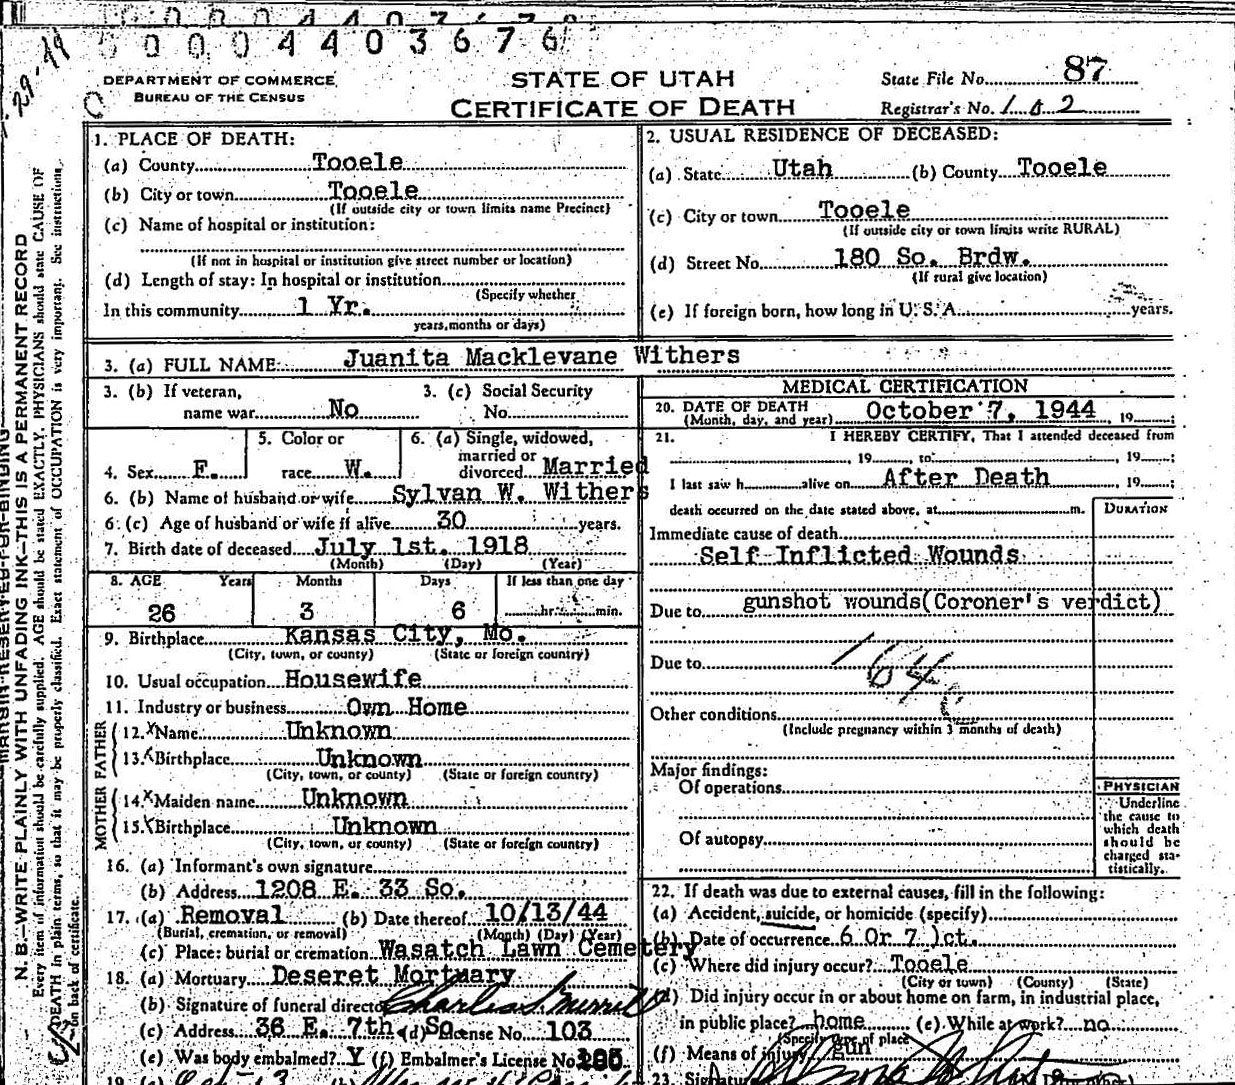 0 0 0 4 4 0 3 6 7 6
DEPARTMENT OF COMMERCE
BUREAU OF THE CENSUS
STATE OF UTAH
CERTIFICATE OF DEATH
State File No. 87
Registrar's No. 1 8 2
MARGIN RESERVED FOR BINDING
N. B.—WRITE PLAINLY WITH UNFADING INK—THIS IS A PERMANENT RECORD
Every item of information should be carefully supplied. AGE should be stated EXACTLY. PHYSICIANS should state CAUSE OF
DEATH in plain terms, so that it may be properly classified. Exact statement of OCCUPATION is very important. See instructions
on back of certificate.
1. PLACE OF DEATH:
(a) County Tooele
(b) City or town Tooele
(If outside city or town limits name Precinct)
(c) Name of hospital or institution:
(If not in hospital or institution give street number or location)
(d) Length of stay: In hospital or institution
(Specify whether
In this community 1 Yr.
years, months or days)
2. USUAL RESIDENCE OF DECEASED:
(a) State Utah (b) County Tooele
(c) City or town Tooele
(If outside city or town limits write RURAL)
(d) Street No. 180 So. Brdw.
(If rural give location)
(e) If foreign born, how long in U. S. A. years.
3. (a) FULL NAME: Juanita Macklevane Withers
3. (b) If veteran,
name war No
3. (c) Social Security
No.
4. Sex F.
5. Color or
race W.
6. (a) Single, widowed,
married or
divorced Married
6. (b) Name of husband or wife Sylvan W. Withers
6. (c) Age of husband or wife if alive 30 years.
7. Birth date of deceased July 1st. 1918
(Month) (Day) (Year)
8. AGE Years Months Days If less than one day
26 3 6 hr. min.
9. Birthplace Kansas City, Mo.
(City, town, or county) (State or foreign country)
10. Usual occupation Housewife
11. Industry or business Own Home
FATHER
12. Name Unknown
13. Birthplace Unknown
(City, town, or county) (State or foreign country)
MOTHER
14. Maiden name Unknown
15. Birthplace Unknown
(City, town, or county) (State or foreign country)
16. (a) Informant's own signature
(b) Address 1208 E. 33 So.
17. (a) Removal (b) Date thereof 10/13/44
(Burial, cremation, or removal) (Month) (Day) (Year)
(c) Place: burial or cremation Wasatch Lawn Cemetery
18. (a) Mortuary Deseret Mortuary
(b) Signature of funeral director Charles
(c) Address 36 E. 7th So. (d) License No. 103
(e) Was body embalmed? Y (f) Embalmer's License No.
MEDICAL CERTIFICATION
20. DATE OF DEATH
(Month, day, and year) October 7, 1944, 19 ;
21. I HEREBY CERTIFY, That I attended deceased from
, 19 , to , 19 ;
I last saw h alive on After Death , 19 ;
death occurred on the date stated above, at m.
DURATION
Immediate cause of death
Self Inflicted Wounds
Due to gunshot wounds(Coroner's verdict)
Due to
164c
Other conditions
(Include pregnancy within 3 months of death)
Major findings:
Of operations
Of autopsy
PHYSICIAN
Underline
the cause to
which death
should be
charged sta-
tistically.
22. If death was due to external causes, fill in the following:
(a) Accident, suicide, or homicide (specify)
(b) Date of occurrence 6 Or 7 Oct.
(c) Where did injury occur? Tooele
(City or town) (County) (State)
(d) Did injury occur in or about home on farm, in industrial place,
in public place? home (e) While at work? no
(Specify type of place
(f) Means of injury gun
23. Signature